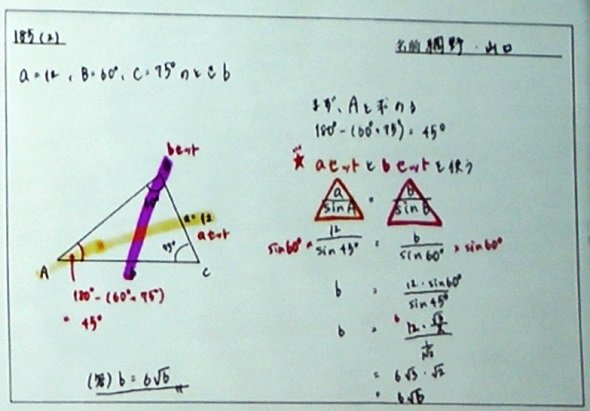 185(2)
名前 網野・山口
a=12, B=60°, C=75°のとき b
まず、Aを求める
180°-(60°+75°)=45°
★ aセットとbセットを使う
a/sin A = b/sin B
sin60° × 12/sin 45° = b/sin 60° × sin60°
b = 12・sin60°/sin 45°
b = 12・√3/2 / 1/√2
= 6√3・√2
= 6√6
bセット
a=12
aセット
75°
A
b
C
180°-(60°+75°)
= 45°
(答) b=6√6